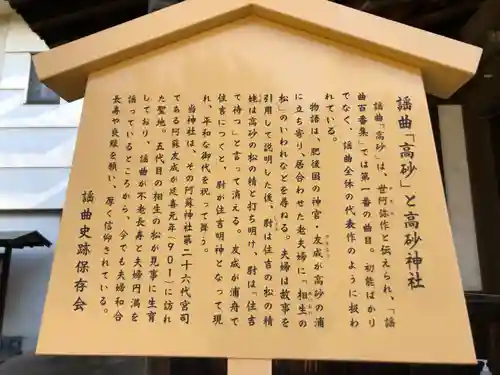 謡曲「高砂」と高砂神社
謡曲「高砂」は、世阿弥作と伝えられ、「謡
曲百番集」では第一番の曲目。初能ばかり
でなく、謡曲全体の代表作のように扱わ
れている。
物語は、肥後国の神官・友成が高砂の浦
に立ち寄り、居合わせた老夫婦に「相生の
松」のいわれなどを尋ねる。夫婦は故事を
引用して説明した後、尉は住吉の松の精
姥は高砂の松の精と打ち明け、尉は「住吉
で待つ」と言って消える。友成が浦舟で
住吉につくと、尉が住吉明神となって現
れ、平和な御代を祝って舞う。
当神社は、その阿蘇神社第二十六代宮司
である阿蘇友成が延喜元年（９０１）に訪れ
た聖地。五代目の相生の松が見事に生育
しており、謡曲が不老長寿と夫婦円満を
謡っているところから、今でも夫婦和合
長寿や良縁を願い、厚く信仰されている。
謡曲史跡保存会